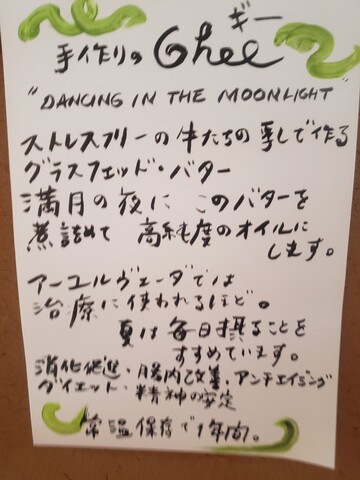 ギー
手作りの Ghee
"DANCING IN THE MOONLIGHT"
ストレスフリーの牛たちの乳で作る
グラスフェッド・バター
満月の夜に このバターを
煮詰めて 高純度のオイルに
します。
アーユルヴェーダでは
治療に使われるほど。
夏は毎日摂ることを
すすめています。
消化促進・腸内改善・アンチエイジング
ダイエット・精神の安定
常温保存で1年間。